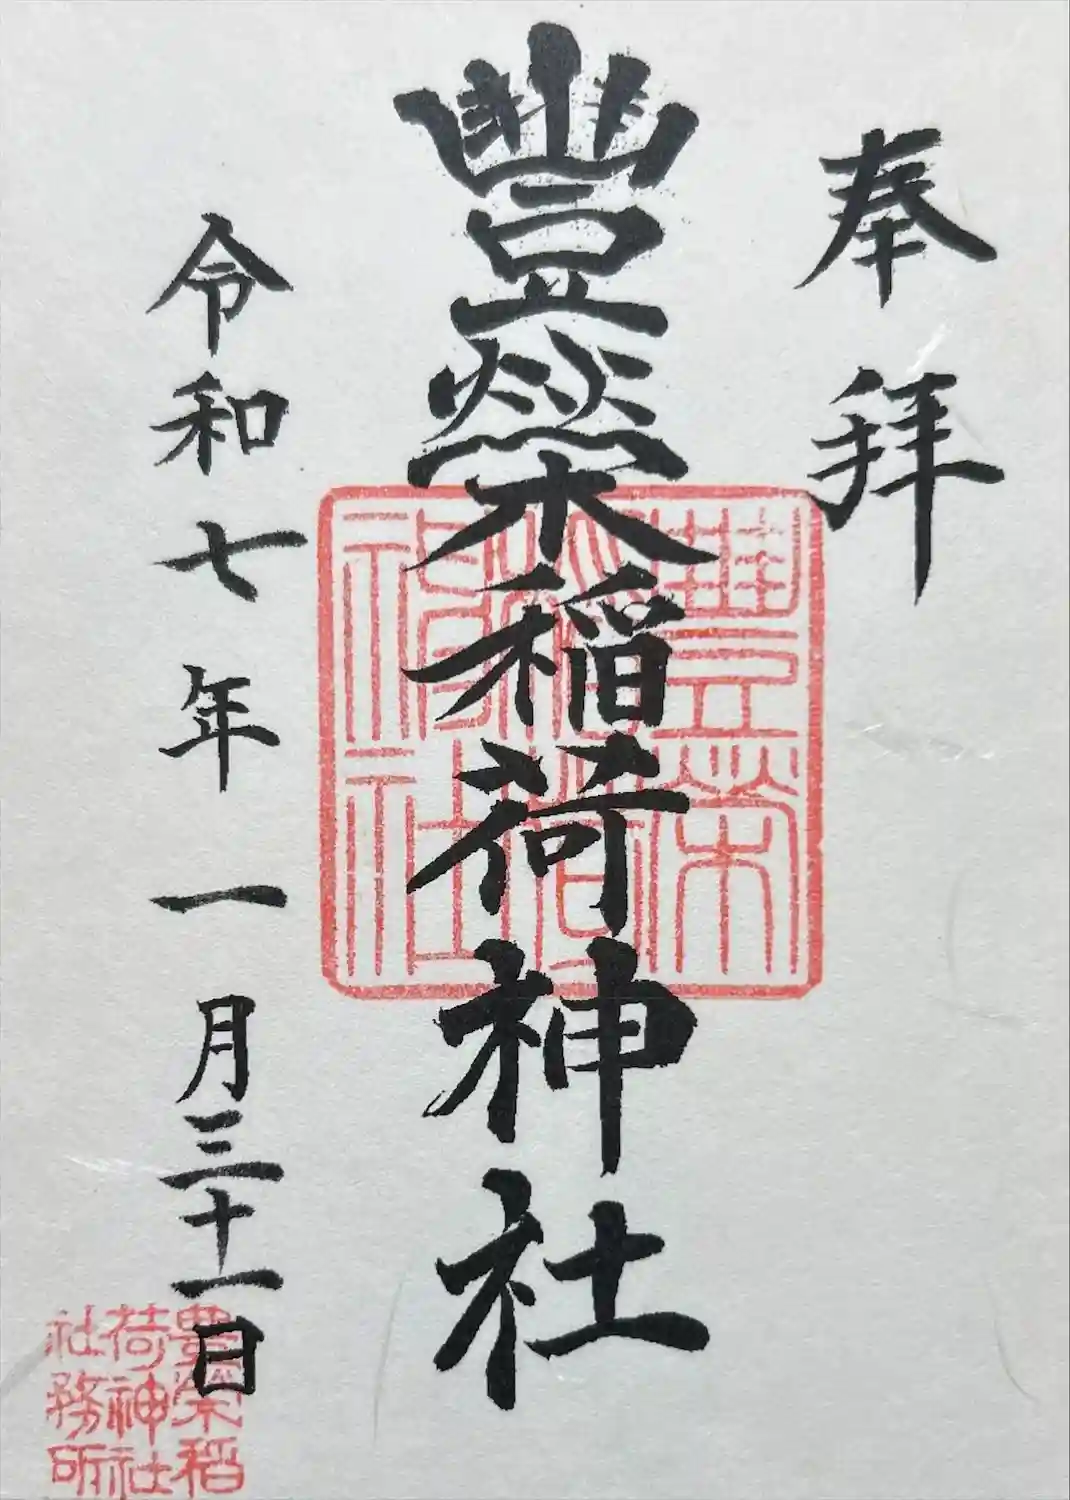 奉拝
豐榮稲荷神社
豊栄稲荷神社
令和七年一月三十一日
豊栄稲
荷神社
社務所